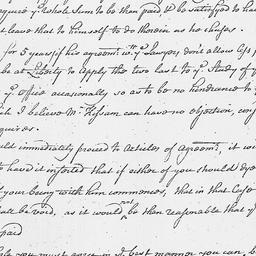 require yᵉ whole Sum to be then paid I'll be satisfied to ha
leave that to himself to do therein as he chuses.
for 5 years if his agreemᵗ wᵗʰ yᵉ Lawyers don't allow less
be at Liberty to apply the two last to yᵉ Study of
yᵉ office occasionally so as to be no hindrance to
I believe Mʳ Kissam can have no objection, con
quires.
immediately proceed to Articles of Agreemᵗ, it wi
have it inserted that if either of you should dye
your being with him commences, that in that Case
be void, as it would not be then reasonable that yᵉ
paid
you must agree in yᵉ best manner you can, b